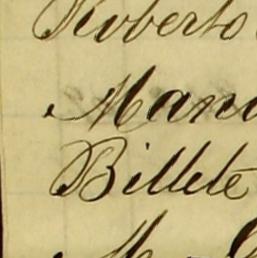 Roberto
Manu
Billete
M